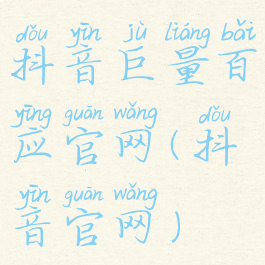 dǒu yīn jù liáng bǎi
抖音巨量百
yīng guān wǎng dǒu
应官网(抖
yīn guān wǎng
音官网)